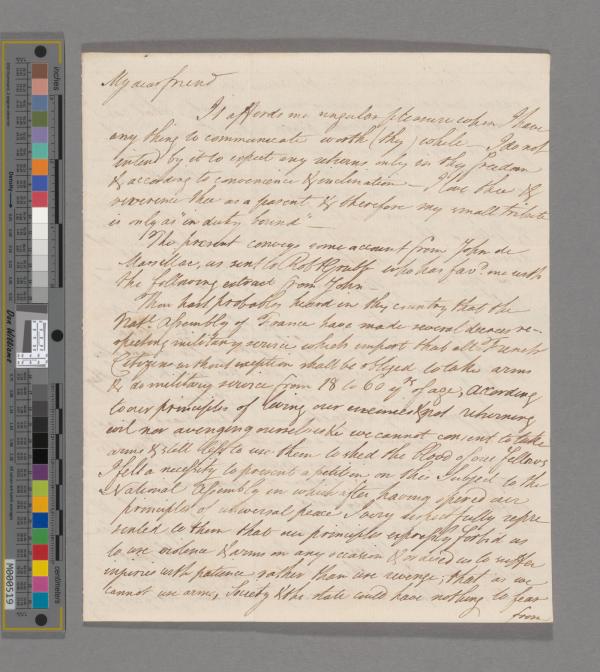 My dear friend
It affords me singular pleasure when I have
any thing to communicate worth (thy) while – I do not
intend by it to expect any returns only in thy freedom
& according to convenience & inclination – I love thee &
reverence thee as a parent & therefore my small tribute
is only as "in duty bound" –
The present conveys some account from John de
Marsillac, as sent to Robt Grubb who has favd. me with
the following extract from John –
Thou hast probably heard in thy country that the
Natl. Assembly of France have made several decrees re-
specting military service which import that all French
Citizens without exception shall be obliged to take arms
& do military service from 18 to 60 yrs of age, According
to our principles of loving our enemies & not returning
evil nor avenging ourselves we cannot consent to take
arms & still less to use them to shed the blood of our fellows
I felt a necessity to present a petition on this Subject to the
National Assembly in which after having opened our
principles of universal peace I very respectfully repre
sented to them that our principles expressly forbid us
to use violence & arms on any occasion & ordered us to suffer
injuries with patience rather than use revenge; that as we
cannot use arms, Society & the state could have nothing to fear
from
inches
centimetres
Density
Don Williams
M000519